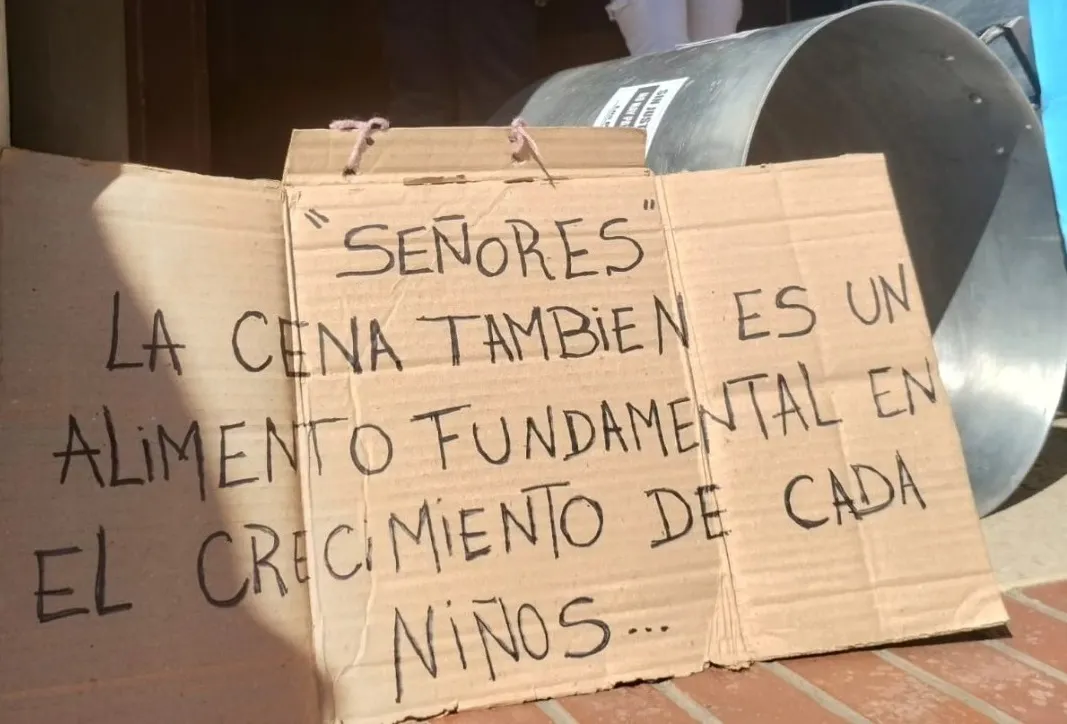 "SEÑORES"
LA CENA TAMBIEN ES UN
ALIMENTO FUNDAMENTAL EN
EL CRECIMIENTO DE CADA
NIÑOS...
SIN JUST